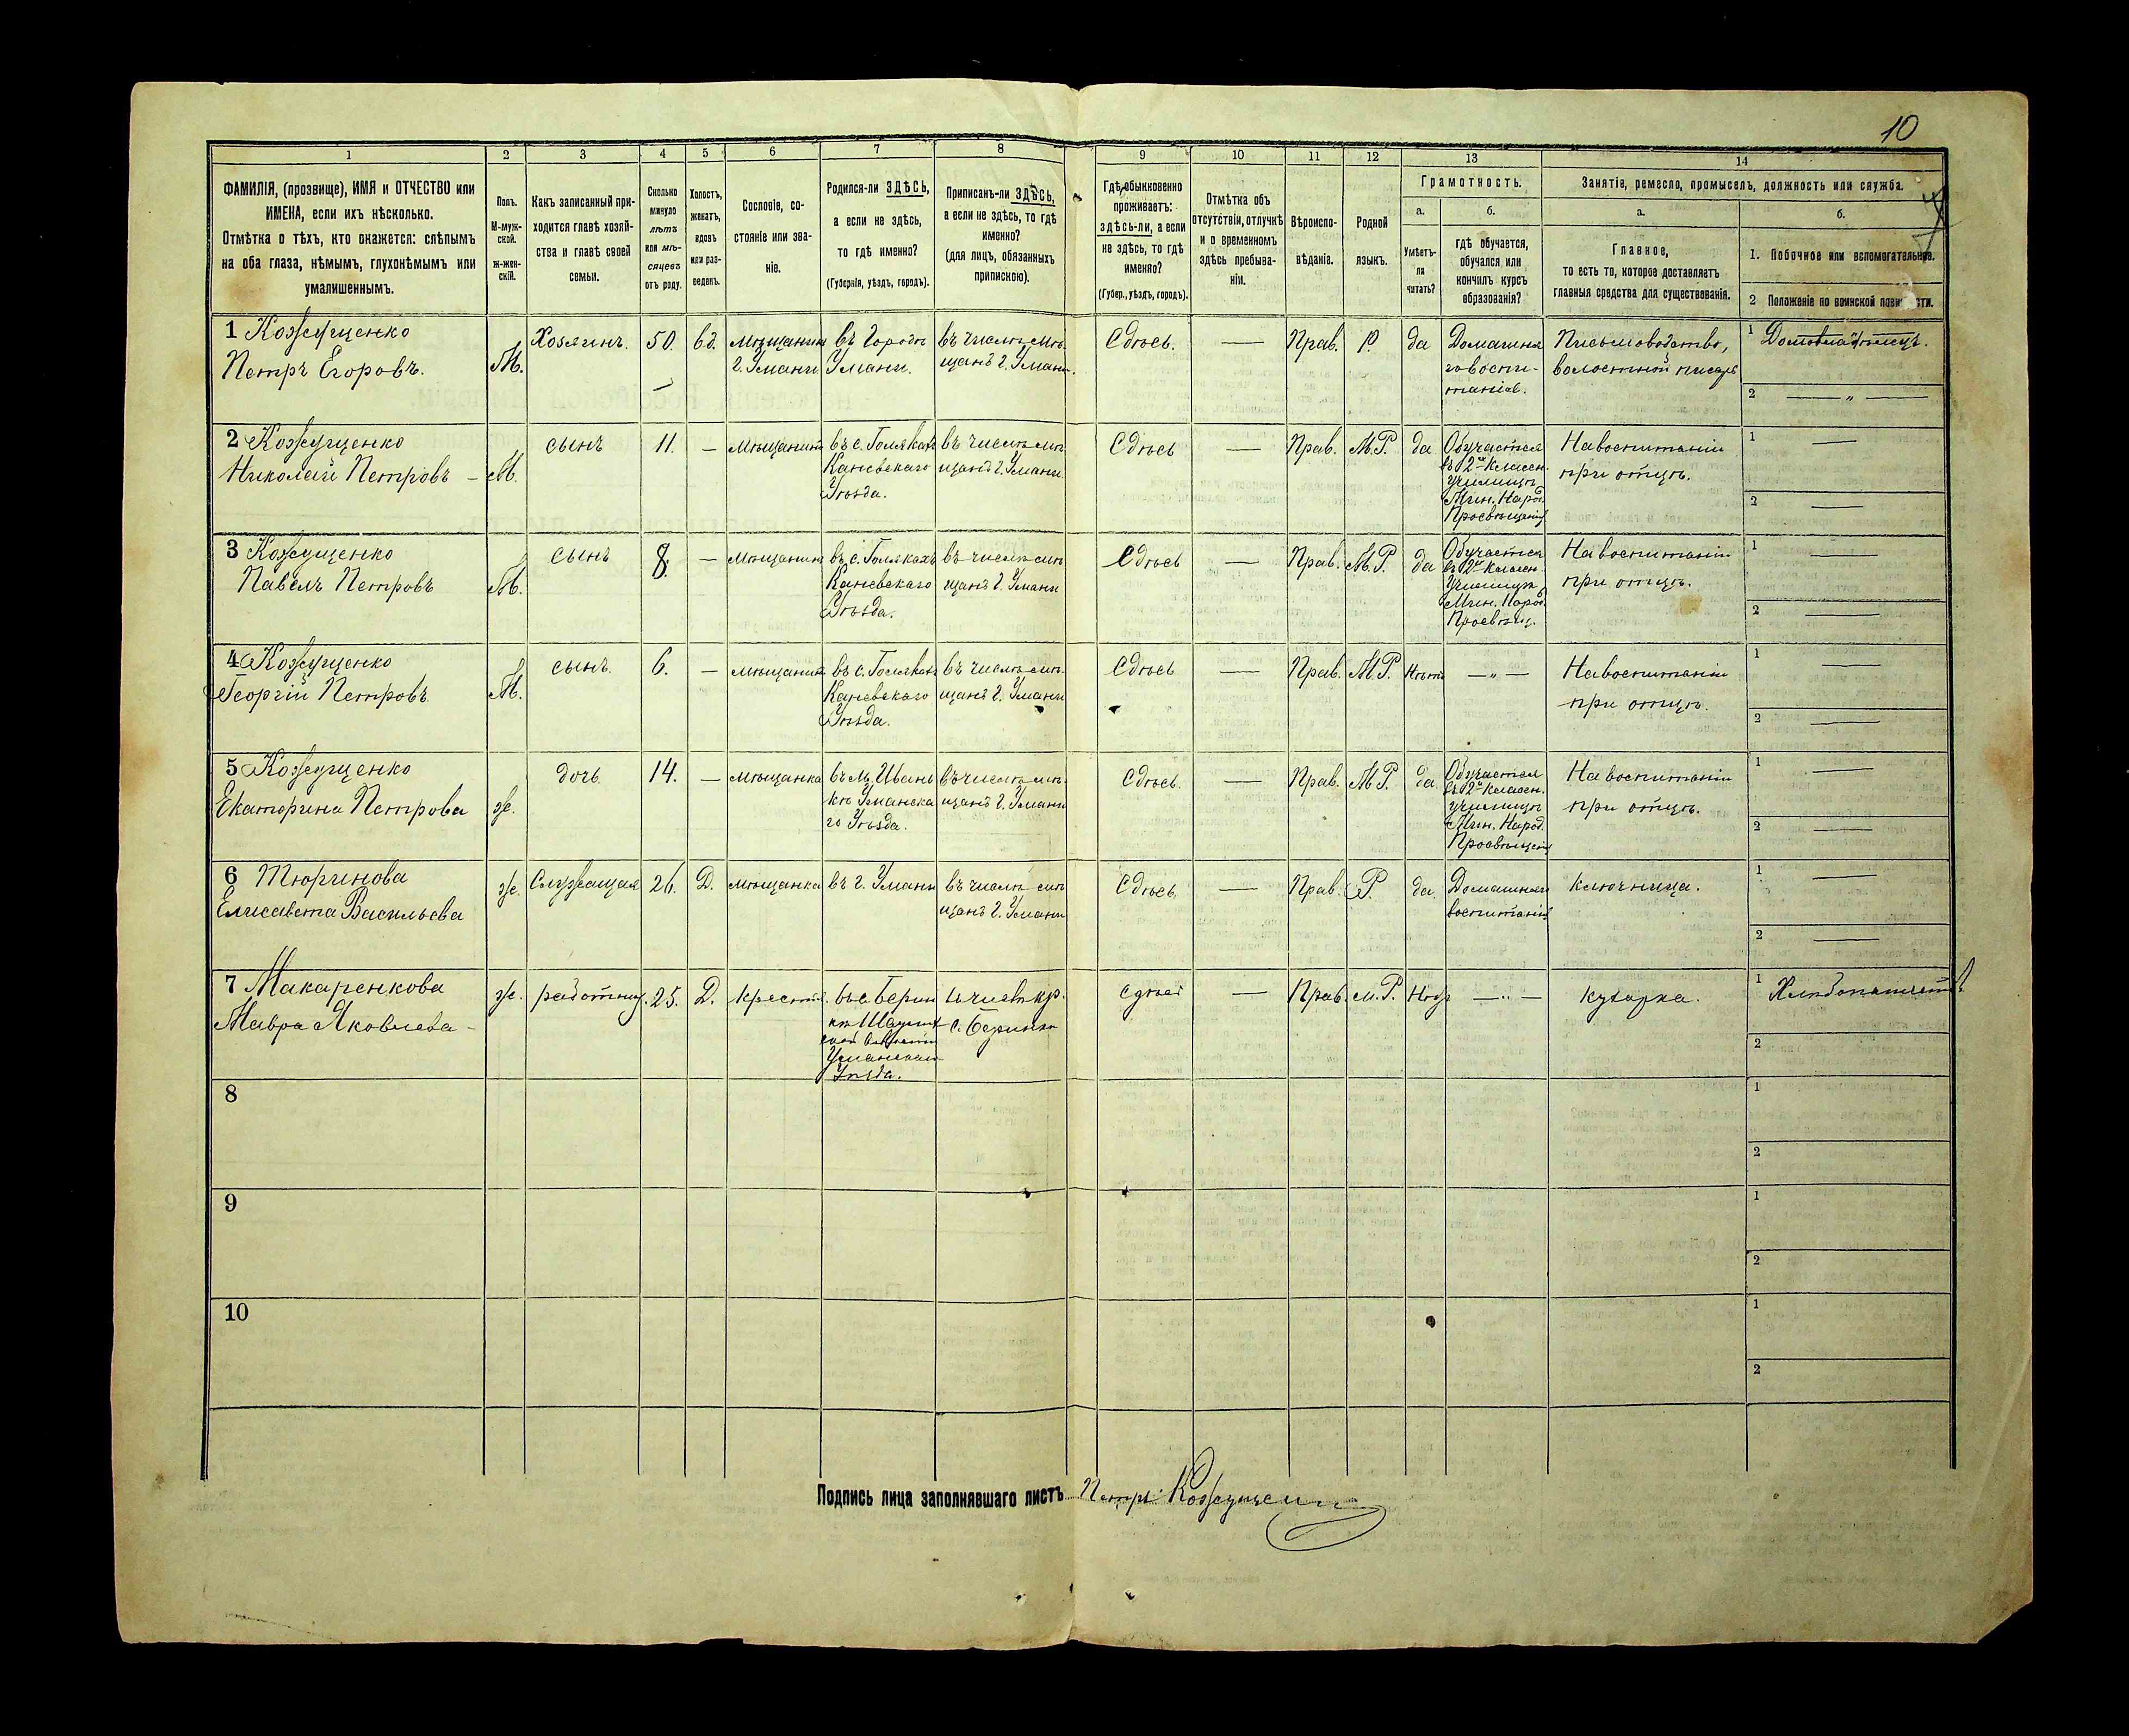 10
1 2 3 4 5 6 7 8 9 10 11 12 13 14
ФАМИЛІЯ, (прозвище), ИМЯ и ОТЧЕСТВО или
ИМЕНА, если ихъ нѣсколько.
Отмѣтка о тѣхъ, кто окажется: слѣпымъ
на оба глаза, нѣмымъ, глухонѣмымъ или
умалишеннымъ.
Полъ.
М-муж-
ской.
Ж-жен-
скій.
Какъ записанный при-
ходится главѣ хозяй-
ства и главѣ своей
семьи.
Сколько
минуло
лѣтъ
или мѣ-
сяцевъ
отъ роду.
Холостъ,
женатъ,
вдовъ
или раз-
веденъ.
Сословіе, со-
стояніе или зва-
ніе.
Родился-ли ЗДѢСЬ,
а если не здѣсь,
то гдѣ именно?
(Губернія, уѣздъ, городъ).
Приписанъ-ли ЗДѢСЬ,
а если не здѣсь, то гдѣ
именно?
(для лицъ, обязанныхъ
припискою).
Гдѣ обыкновенно
проживаетъ:
здѣсь-ли, а если
не здѣсь, то гдѣ
именно?
(Губер., уѣздъ, городъ).
Отмѣтка объ
отсутствіи, отлучкѣ
и о временномъ
здѣсь пребыва-
ніи.
Вѣроиспо-
вѣданіе.
Родной
языкъ.
Грамотность.
а.
Умѣетъ-
ли
читать?
б.
гдѣ обучается,
обучался или
кончилъ курсъ
образованія?
Занятіе, ремесло, промыселъ, должность или служба.
а.
Главное,
то есть то, которое доставляетъ
главныя средства для существованія.
б.
1. Побочное или вспомогательное.
2 Положеніе по воинской повинности.
1 Кожущенко
Петръ Егоровъ.
М.
Хозяинъ.
50.
вд.
Мѣщанинъ
г. Умани
въ Городѣ
Умани.
въ числѣ мѣ-
щанъ г. Умани.
Сдѣсь.
—
Прав.
Р.
да
Домашня
го воспи-
танія.
Письмоводство,
волостной писарь
1
2 — „ —
2 Кожущенко
Николай Петровъ —
М.
сынъ
11.
—
Мѣщанинъ
въ с. Голякахъ
Каневскаго
Уѣзда.
въ числѣ мѣ
щанъ г. Умани
Сдѣсь
—
Прав.
М.Р.
да
Обучается
въ 2хъ классн.
училищѣ
Мин. Народ.
Просвѣщенія
На воспитаніи
при отцѣ.
1 —
2 —
3 Кожущенко
Павелъ Петровъ
М.
сынъ
8.
—
Мѣщанинъ
въ с. Голякахъ
Каневскаго
Уѣзда.
въ числѣ мѣ
щанъ г. Умани
Сдѣсь
—
Прав.
М.Р.
да
Обучается
въ 2хъ классн.
Училищѣ
Мин. Народ.
Просвѣщ.
На воспитаніи
при отцѣ.
1 —
2 —
4 Кожущенко
Георгій Петровъ
М.
сынъ
6.
—
мѣщанинъ
въ с. Голякахъ
Каневскаго
Уѣзда.
въ числѣ мѣ-
щанъ г. Умани
Сдѣсь
—
Прав.
М.Р.
Нѣтъ
— „ —
На воспитаніи
при отцѣ.
1 —
2 —
5 Кожущенко
Екатерина Петрова
ж.
дочь
14.
—
мѣщанка
въ м. Ивань
кѣ Уманска
го Уѣзда.
въ числѣ мѣ-
щанъ г. Умани
Сдѣсь.
—
Прав.
М.Р.
да
Обучается
въ 2хъ классн.
училищѣ
Мин. Народ.
Просвѣщенія
На воспитаніи
при отцѣ.
1 —
2 —
6 Тюринова
Елисавета Васильева
ж.
Служащая
26.
Д.
мѣщанка
въ г. Умани
въ числѣ мѣ
щанъ г. Умани
Сдѣсь
—
Прав.
Р.
да.
Домашняго
воспитанія
ключница.
1 —
2 —
7 Макаренкова
Мавра Яковлева —
ж.
работниц.
25.
Д.
крестя.
Уманскаго
Уѣзда.
сдѣсь
—
Прав.
М.Р.
— „ —
кухарка.
1
2
8
1
2
9
1
2
10
1
2
Подпись лица заполнявшаго листъ Петръ Кожущенко